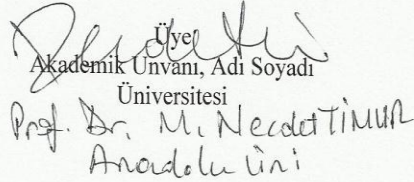 Üye
Akademik Unvanı, Adı Soyadı
Üniversitesi
Prof. Dr. M. Necdet TİMUR
Anadolu Üni